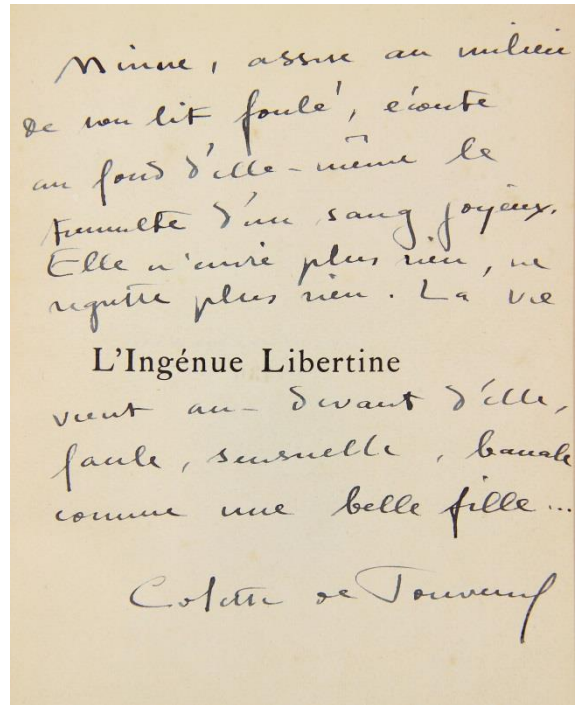 Minne, assise au milieu
de son lit foulé, écoute
au fond d'elle-même le
tumulte d'un sang joyeux.
Elle n'envie plus rien, ne
regrette plus rien. La vie
L'Ingénue Libertine
vient au-devant d'elle,
facile, sensuelle, banale
comme une belle fille...
Colette de Jouvenel